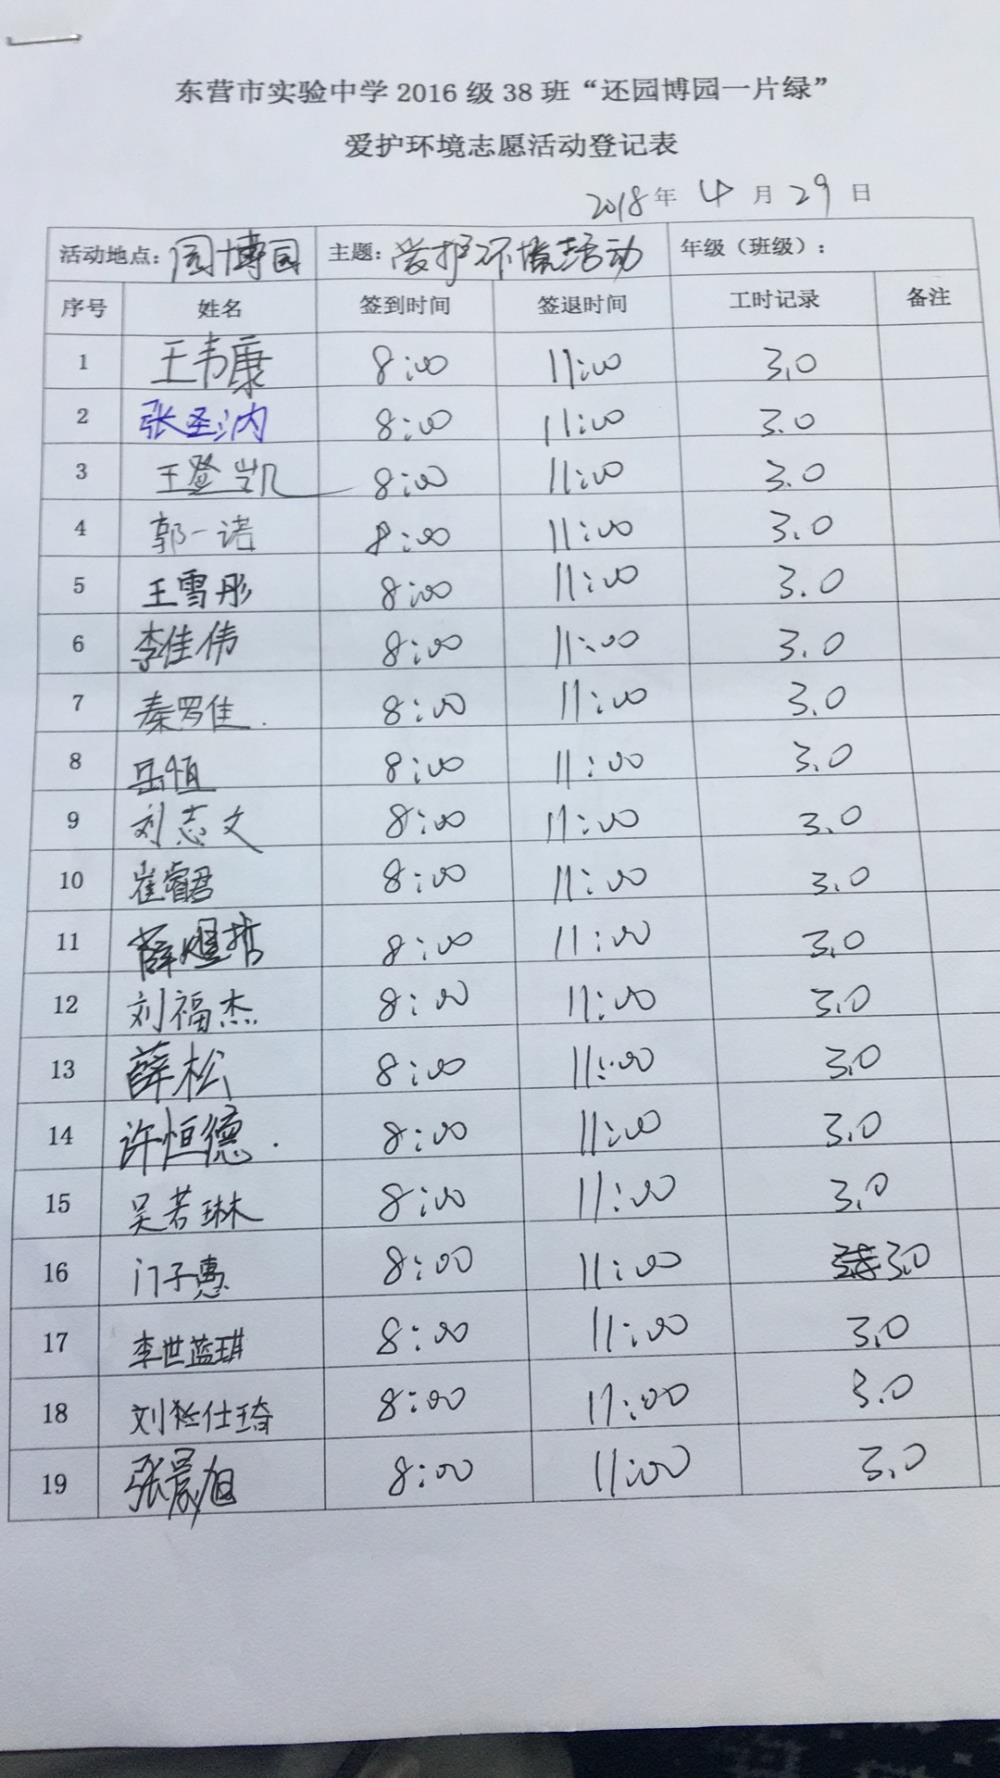 东营市实验中学2016级38班“还园博园一片绿”
爱护环境志愿活动登记表
2018年 4 月 29 日
活动地点: 园博园 主题: 爱护环境活动 年级（班级）:
序号 姓名 签到时间 签退时间 工时记录 备注
1 王韦康 8:00 11:00 3.0
2 张圣汭 8:00 11:00 3.0
3 王登凯 8:00 11:00 3.0
4 郭一诺 8:00 11:00 3.0
5 王雪彤 8:00 11:00 3.0
6 李佳伟 8:00 11:00 3.0
7 秦罗佳 8:00 11:00 3.0
8 岳恒 8:00 11:00 3.0
9 刘志文 8:00 11:00 3.0
10 崔睿君 8:00 11:00 3.0
11 薛煜哲 8:00 11:00 3.0
12 刘福杰 8:00 11:00 3.0
13 薛松 8:00 11:00 3.0
14 许恒德 8:00 11:00 3.0
15 吴若琳 8:00 11:00 3.0
16 门子惠 8:00 11:00 3.0
17 李世蓝琪 8:00 11:00 3.0
18 8:00 11:00 3.0
19 张晨旭 8:00 11:00 3.0